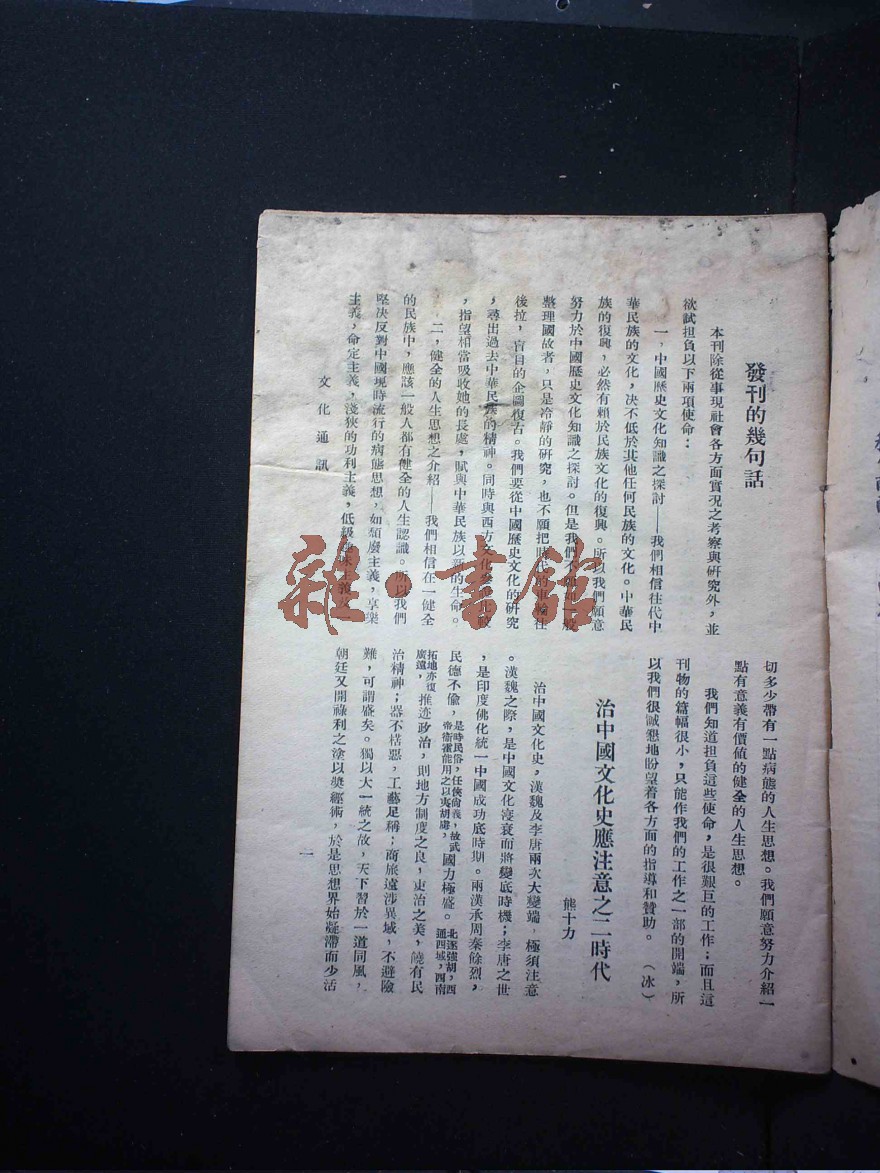 發刊的幾句話
本刊除從事現社會各方面實況之考察與研究外，並
欲試担負以下兩項使命：
一，中國歷史文化知識之探討——我們相信往代中
華民族的文化，决不低於其他任何民族的文化。中華民
族的復興，必然有賴於民族文化的復興。所以我們願意
努力於中國歷史文化知識之探討。但是我們不一般
整理國故者，只是冷靜的研究，也不願把時代的車輪往
後拉，盲目的企圖復古。我們要從中國歷史文化的研究
，尋出過去中華民族的精神。同時與西方文化比較
，指望相當吸收她的長處，賦與中華民族以新的生命。
二，健全的人生思想之介紹——我們相信在一健全
的民族中，應該一般人都有健全的人生認識。所以我們
堅决反對中國現時流行的病態思想，如頹廢主義，享樂
主義，命定主義，淺狹的功利主義，低級趣味主義及
文化通訊
切多少帶有一點病態的人生思想。我們願意努力介紹一
點有意義有價値的健全的人生思想。
我們知道担負這些使命，是很艱巨的工作；而且這
刊物的篇幅很小，只能作我們的工作之一部的開端，所
以我們很誠懇地盼望着各方面的指導和贊助。（冰）
治中國文化史應注意之二時代
熊十力
治中國文化史，漢魏及李唐兩次大變端，極須注意
。漢魏之際，是中國文化寖衰而將變底時機；李唐之世
，是印度佛化統一中國成功底時期。兩漢承周秦餘烈，
民德不偷，是時民俗，任俠尙義，故武帝衞霍能用之以夷胡虜，國力極盛。北逐強胡，西通西域，西南
拓地亦復廣遠，推迹政治，則地方制度之良，吏治之美，饒有民
治精神；器不楛惡，工藝足稱；商旅遠涉異域，不避險
難，可謂盛矣。獨以大一統之故，天下習於一道同風，
朝廷又開祿利之塗以奬經術，於是思想界始凝滯而少活
一
雜·書館